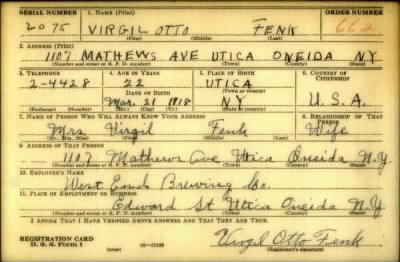 SERIAL NUMBER 1. NAME (Print) ORDER NUMBER
2075 VIRGIL OTTO FENK 662
(First) (Middle) (Last)
2. ADDRESS (Print)
1107 MATHEWS AVE UTICA ONEIDA NY
(Number and street or R. F. D. number) (Town) (County) (State)
3. TELEPHONE 4. AGE IN YEARS 5. PLACE OF BIRTH 6. COUNTRY OF CITIZENSHIP
2-4428 22 UTICA
DATE OF BIRTH (Town or county)
Mar. 21 1918 NY U.S.A.
(Exchange) (Number) (Mo.) (Day) (Yr.) (State or country)
7. NAME OF PERSON WHO WILL ALWAYS KNOW YOUR ADDRESS 8. RELATIONSHIP OF THAT PERSON
Mrs Virgil Fenk Wife
(Mr., Mrs., Miss) (First) (Middle) (Last)
9. ADDRESS OF THAT PERSON
1107 Mathews Ave Utica Oneida N.Y.
(Number and street or R. F. D. number) (Town) (County) (State)
10. EMPLOYER'S NAME
West End Brewing Co.
11. PLACE OF EMPLOYMENT OR BUSINESS
Edward St Utica Oneida N.Y.
(Number and street or R. F. D. number) (Town) (County) (State)
I AFFIRM THAT I HAVE VERIFIED ABOVE ANSWERS AND THAT THEY ARE TRUE.
REGISTRATION CARD
D. S. S. FORM 1 (over) Virgil Otto Fenk
(Registrant's signature)